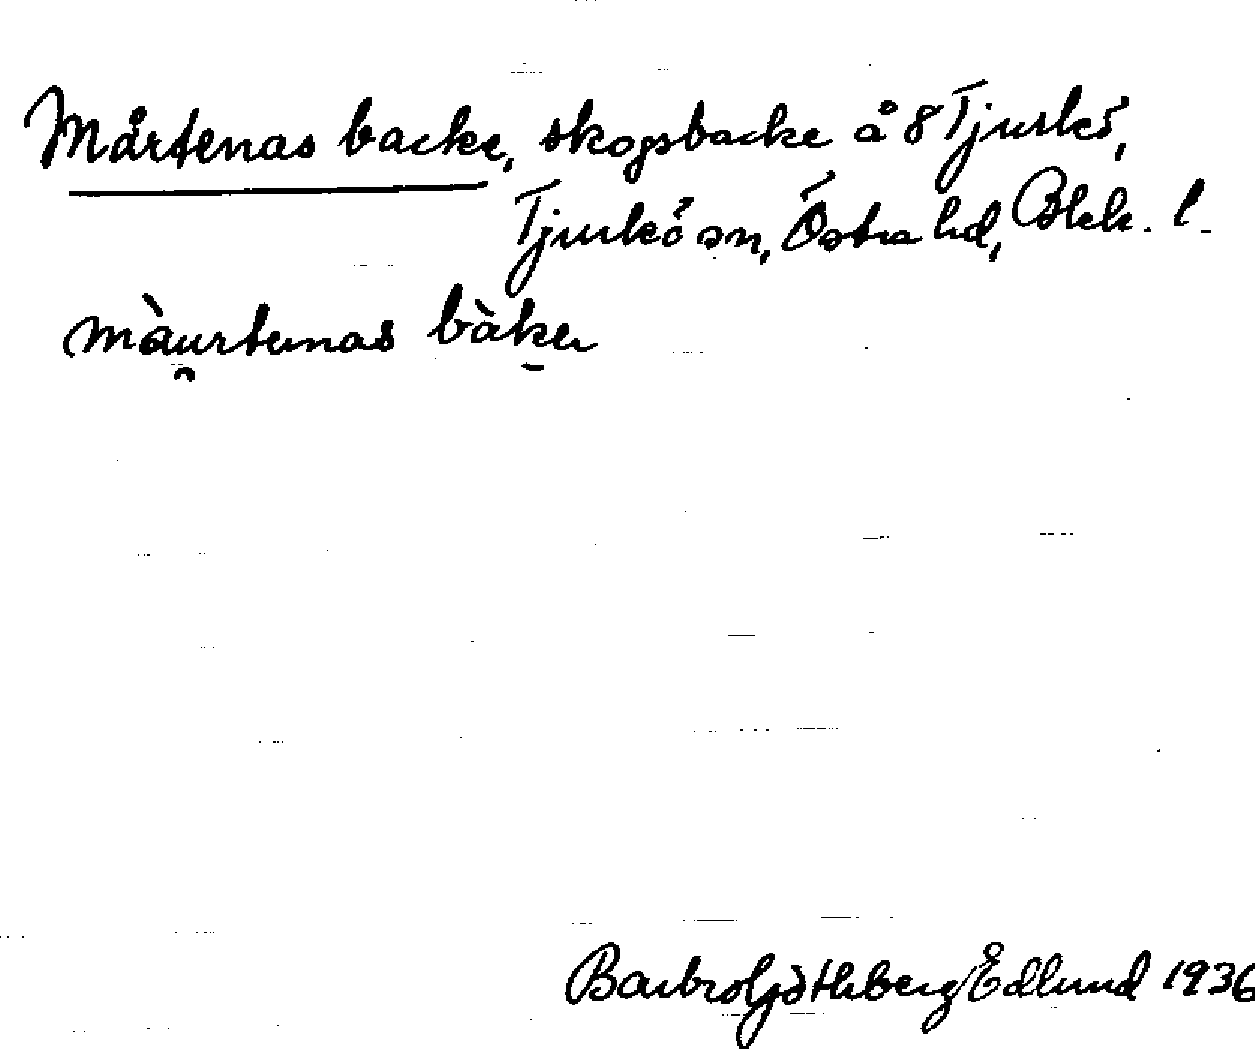 Mårtenas backe, skogsbacke å 8 Tjurkö,
Tjurkö sn, Östra hd, Blek. l.
màurtenas bàker
Barbro Götherberg Edlund 1936